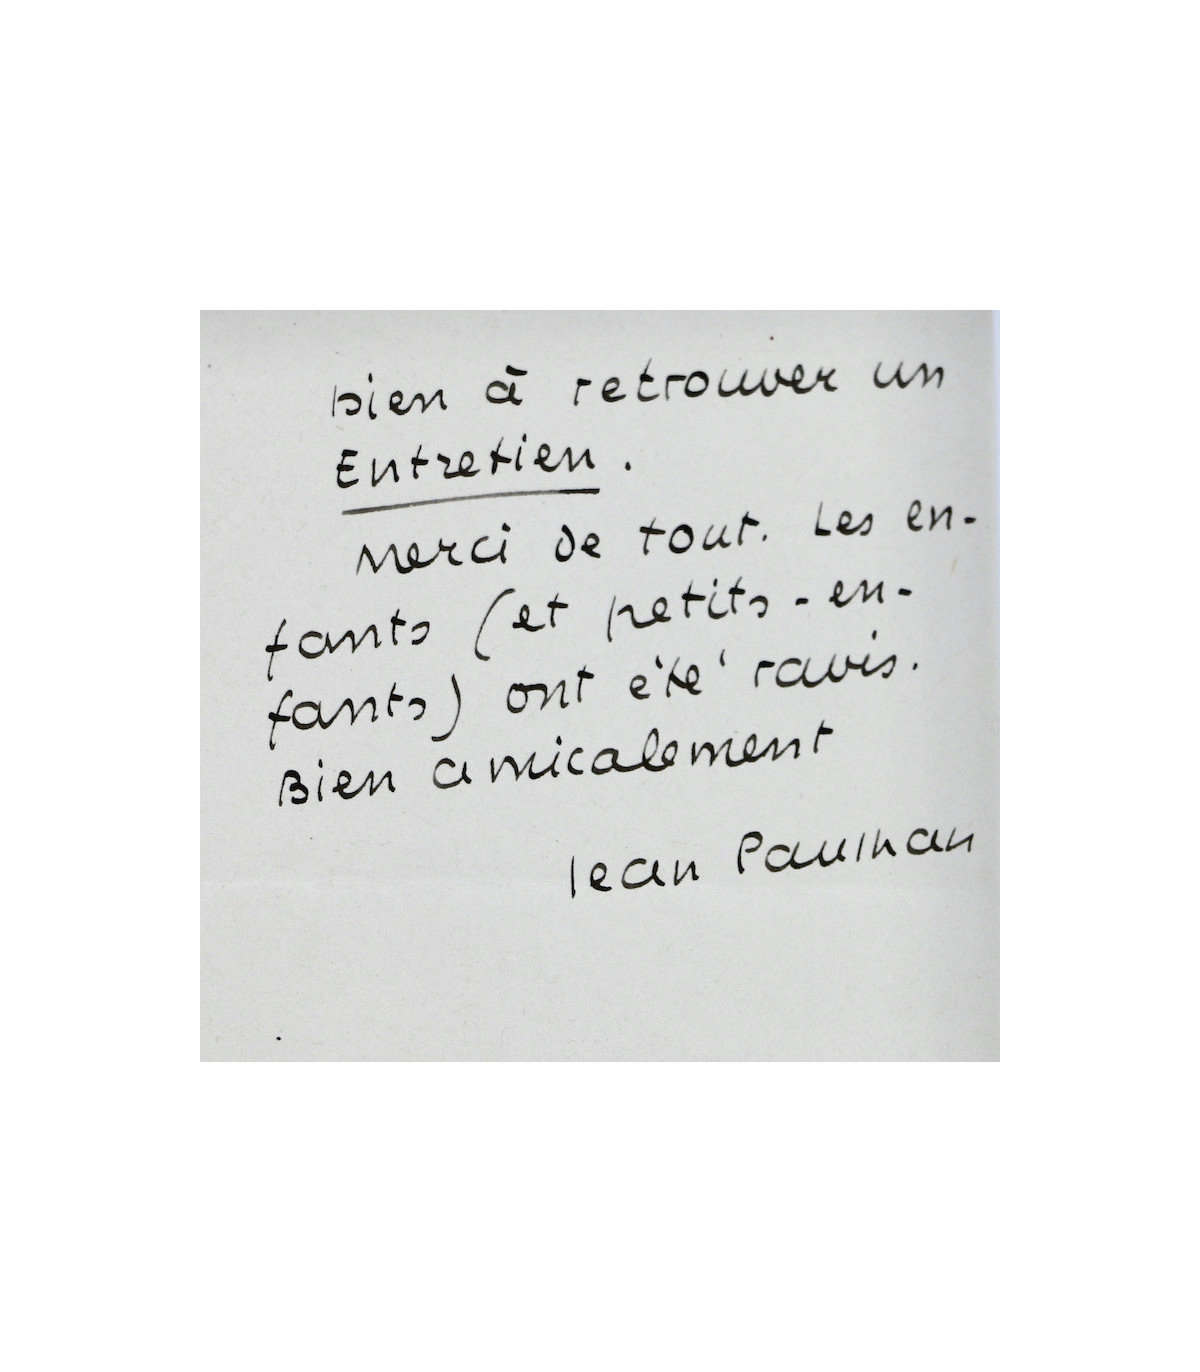 bien à retrouver un
Entretien.
Merci de tout. Les en-
fants (et petits-en-
fants) ont été ravis.
Bien amicalement
Jean Paulhan